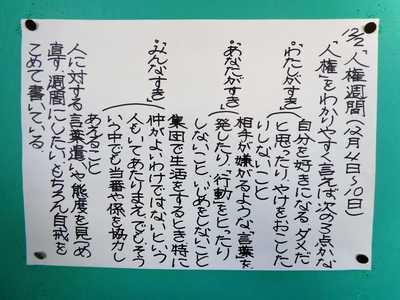 12/2「人権週間」(12月4日~10日)
「人権」をわかりやすく言えば次の3点かな
「わたしがすき」
自分を好きになる ダメだ
と思ったり、やけをおこした
りしないこと
「あなたがすき」
相手が嫌がるような「言葉」を
発したり、「行動」をとったり
しないこと いじめをしないこと
「みんなすき」
集団で生活をするとき特に
仲がよいわけではないという
人もいてあたりまえ でもそう
いう中でも当番や係を協力し
あえること
人に対する言葉遣いや能度を見つめ
直す週間にしたい。もちろん自戒を
こめて書いている